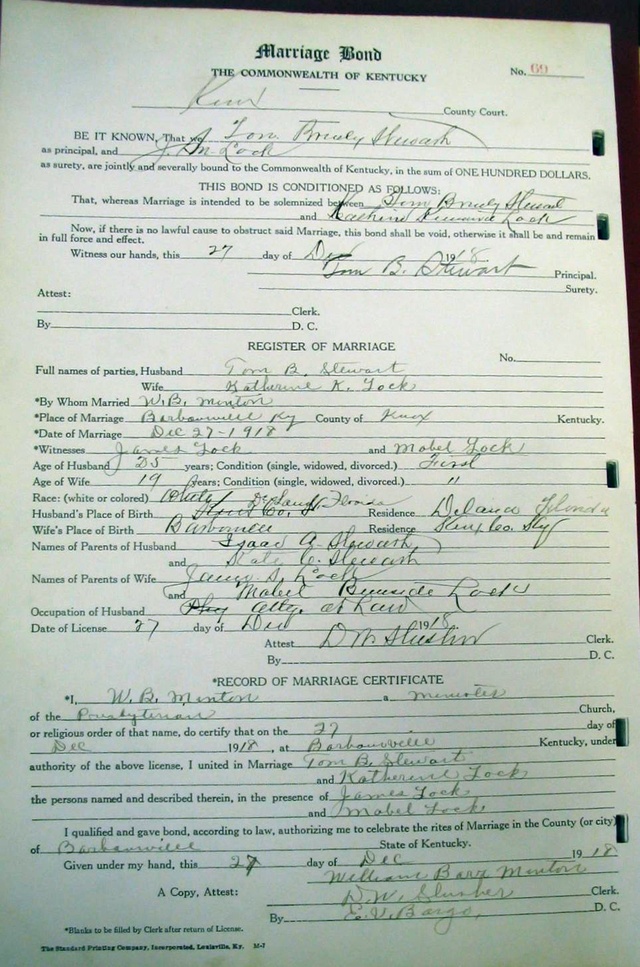 Marriage Bond
THE COMMONWEALTH OF KENTUCKY
No. 69
Knox County Court.
BE IT KNOWN, That we Tom Stewart
as principal, and J. Lock
as surety, are jointly and severally bound to the Commonwealth of Kentucky, in the sum of ONE HUNDRED DOLLARS.
THIS BOND IS CONDITIONED AS FOLLOWS:
That, whereas Marriage is intended to be solemnized between Tom
and Lock
Now, if there is no lawful cause to obstruct said Marriage, this bond shall be void, otherwise it shall be and remain
in full force and effect.
Witness our hands, this 27 day of Dec 1918.
Tom B. Stewart Principal.
Surety.
Attest:
Clerk.
By D. C.
REGISTER OF MARRIAGE
No.
Full names of parties, Husband Tom B. Stewart
Wife Katherine K. Lock
*By Whom Married W.B. Minton
*Place of Marriage Barbourville Ky County of Knox Kentucky.
*Date of Marriage Dec 27-1918
*Witnesses James Lock and Mabel Lock
Age of Husband 25 years; Condition (single, widowed, divorced.) First
Age of Wife 19 years; Condition (single, widowed, divorced.) "
Race: (white or colored) White DeLand, Florida
Husband's Place of Birth Residence Deland Florida
Wife's Place of Birth Residence Knox Co. Ky
Names of Parents of Husband Isaac A. Stewart
and Kate C. Stewart
Names of Parents of Wife Lock
and Mabel Lock
Occupation of Husband Atty. at Law
Date of License 27 day of Dec 1918.
Attest Clerk.
By D. C.
*RECORD OF MARRIAGE CERTIFICATE
*I, W. B. Minton a minister
of the Presbyterian Church,
or religious order of that name, do certify that on the 27 day of
Dec 1918, at Barbourville Kentucky, under
authority of the above license, I united in Marriage Tom B. Stewart
and Katherine Lock
the persons named and described therein, in the presence of James Lock
and Mabel Lock
I qualified and gave bond, according to law, authorizing me to celebrate the rites of Marriage in the County (or city)
of Barbourville State of Kentucky.
Given under my hand, this 27 day of Dec 1918
William Minton
A Copy, Attest: D. W. Slusher Clerk.
By E. V. Bargo, D. C.
*Blanks to be filled by Clerk after return of License.
The Standard Printing Company, Incorporated, Louisville, Ky. M-7